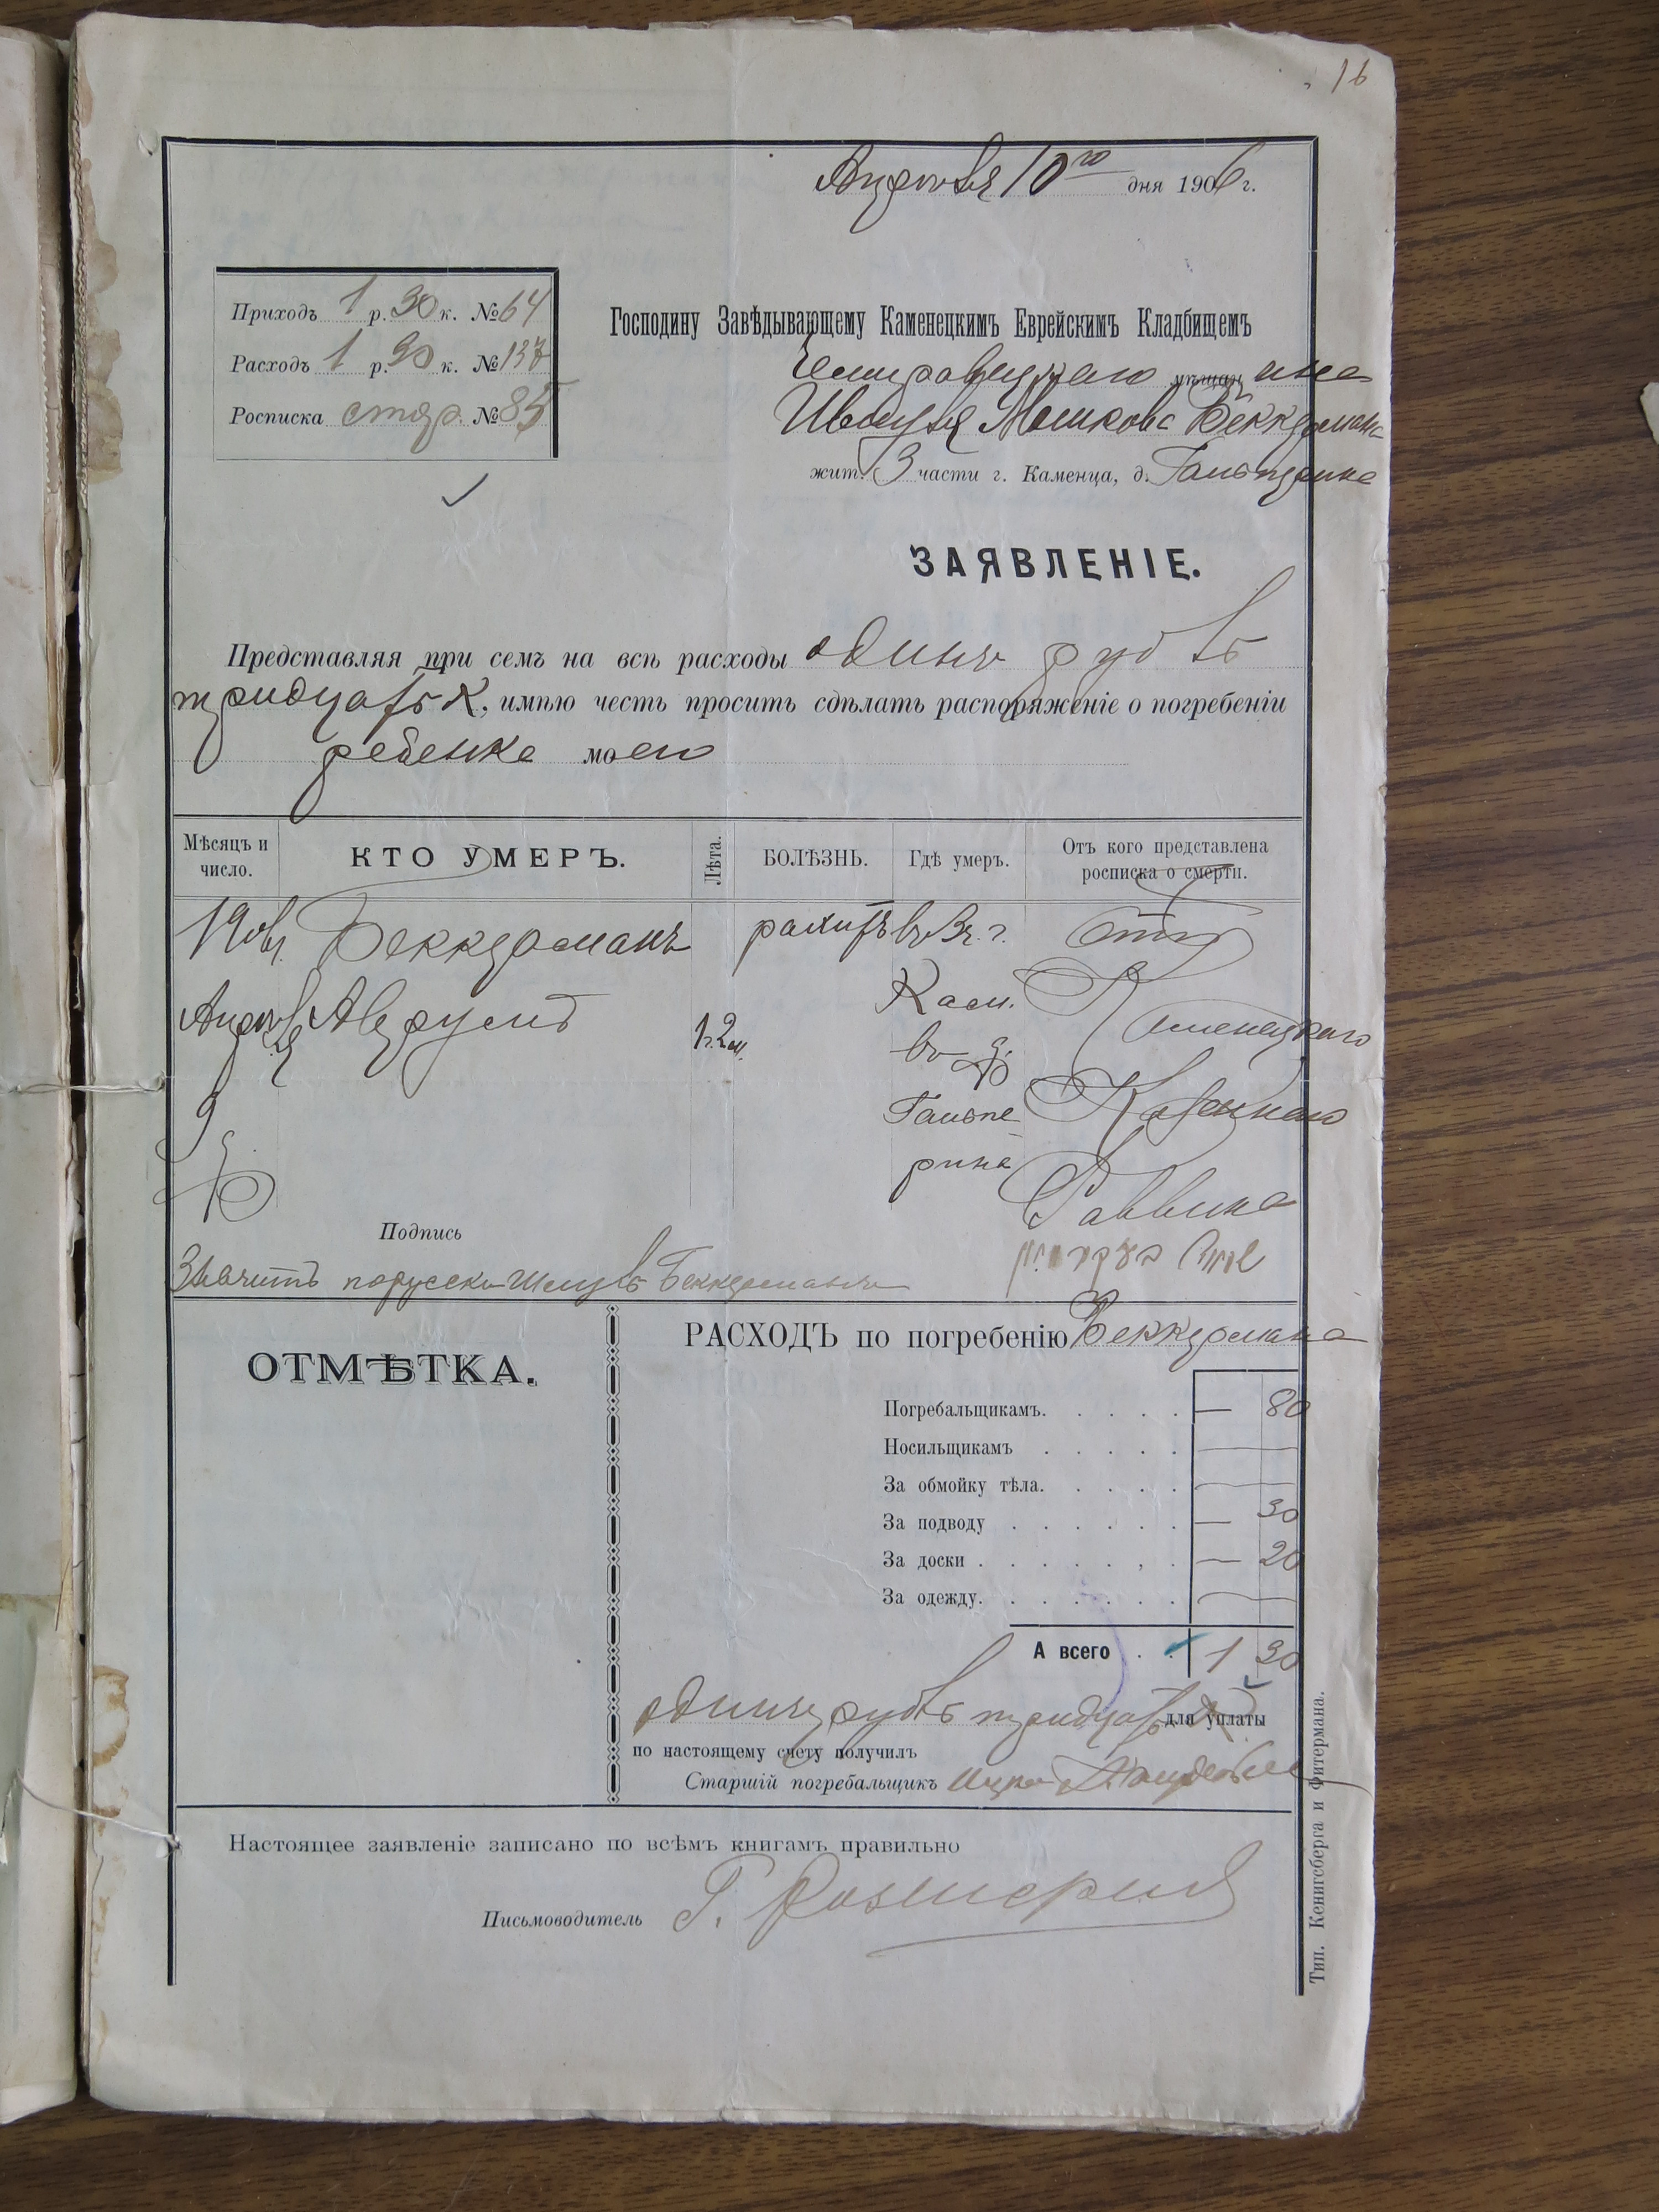 16
10го дня 1906 г.
Приходъ 1 р. 30 к. № 64
Расходъ 1 р. 30 к. № 137
Росписка стар. № 85
Господину Завѣдывающему Каменецкимъ Еврейскимъ Кладбищемъ
мѣщанина
Мошкова Беккермана
жит. 3 части г. Каменца, д. Гальперина
ЗАЯВЛЕНІЕ.
Представляя при семъ на всѣ расходы одинъ рубль
тридцать к., имѣю честь просить сдѣлать распоряженіе о погребеніи
ребенка моего
Мѣсяцъ и число.
КТО УМЕРЪ.
Лѣта.
БОЛѢЗНЬ.
Гдѣ умеръ.
Отъ кого представлена росписка о смерти.
Беккерманъ рахитъ въ 3 ч. г.
Аврумъ 1 г. 2 м. Кам. Каменецкаго
9 въ д.
Гальпе- Казеннаго
рина
Раввина
Подпись
Значитъ порусски Шмуль Беккерманъ
ОТМѢТКА.
РАСХОДЪ по погребенію Беккермана
Погребальщикамъ. — 80
Носильщикамъ —
За обмойку тѣла. —
За подводу — 30
За доски — 20
За одежду. —
А всего 1 30
одинъ рубль тридцать к. для уплаты
по настоящему счету получилъ
Старшій погребальщикъ Ицко
Настоящее заявленіе записано по всѣмъ книгамъ правильно
Письмоводитель Г.
Тип. Кенигсберга и Фитермана.